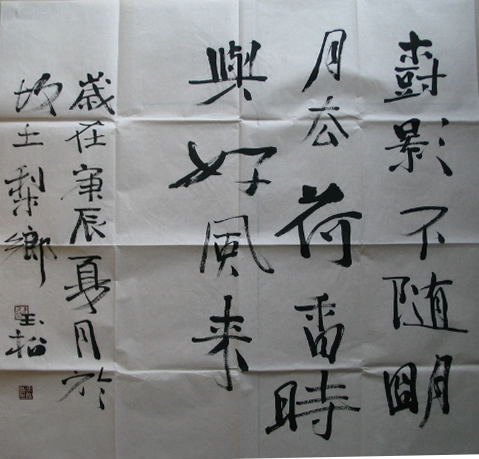 樹影不随明
月去荷香時
與好風来
歲在庚辰夏月於
土梨鄉